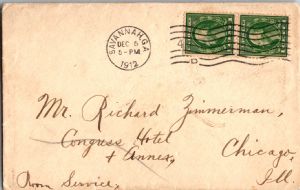 SAVANNAH, GA
DEC 5
5-PM
1912
Mr. Richard Zimmerman,
Congress Hotel
+ Annex, Chicago,
Ill.
Room Service,